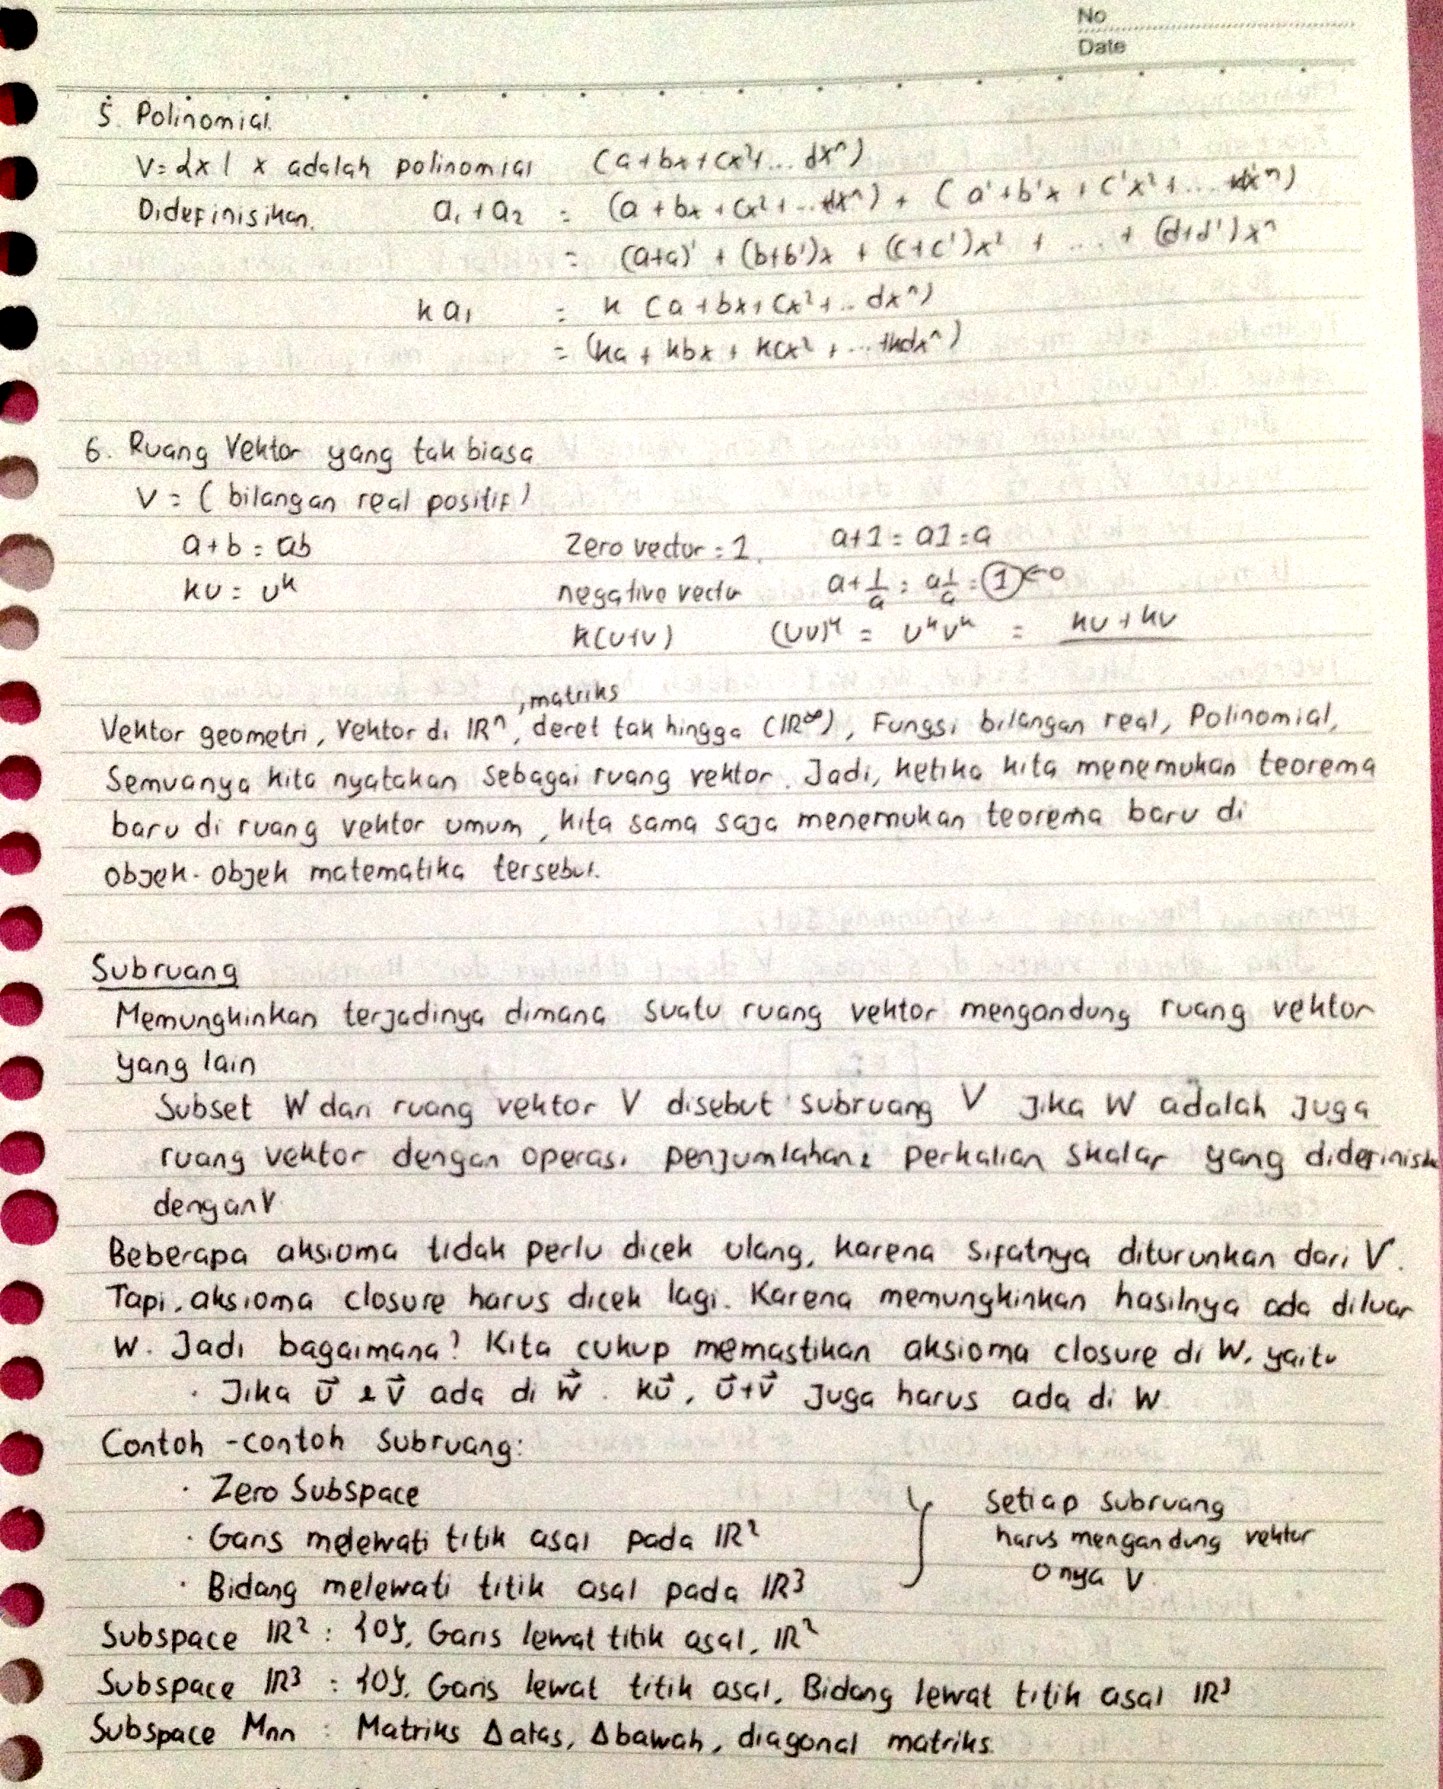 No
Date
5. Polinomial
V = {x | x adalah polinomial (a+bx+cx²+... dx^n)
Didefinisikan. a₁+a₂ = (a+bx+cx²+...dx^n) + (a'+b'x + c'x²+... dx^n)
= (a+a)' + (b+b')x + (c+c')x² + ... + (d+d')x^n
k a₁ = k (a+bx+cx²+..dx^n)
= (ka + kbx + kcx² + ...+kdx^n)
6. Ruang Vektor yang tak biasa
V = ( bilangan real positif )
a+b = ab Zero vector = 1. a+1 = a1 = a
ku = u^k negative vecto a+1/a = a 1/a = 1 ← 0
k(u+v) (uv)^k = u^k v^k = ku + kv
, matriks
Vektor geometri, vektor di IR^n, deret tak hingga (IR^∞), Fungsi bilangan real, Polinomial,
Semuanya kita nyatakan sebagai ruang vektor. Jadi, ketika kita menemukan teorema
baru di ruang vektor umum, kita sama saja menemukan teorema baru di
objek-objek matematika tersebut.
Subruang
Memungkinkan terjadinya dimana suatu ruang vektor mengandung ruang vektor
yang lain
Subset W dari ruang vektor V disebut subruang V jika W adalah juga
ruang vektor dengan operasi penjumlahan & perkalian skalar yang didefinisik
dengan V
Beberapa aksioma tidak perlu dicek ulang, karena sifatnya diturunkan dari V.
Tapi, aksioma closure harus dicek lagi. Karena memungkinkan hasilnya ada diluar
W. Jadi bagaimana? Kita cukup memastikan aksioma closure di W, yaitu
· Jika u⃗ & v⃗ ada di w⃗. ku⃗, u⃗+v⃗ juga harus ada di W
Contoh-contoh Subruang:
· Zero Subspace
· Garis melewati titik asal pada IR²
· Bidang melewati titik asal pada IR³
} Setiap subruang
harus mengandung vektor
0 nya V
Subspace IR² : {0}, Garis lewat titik asal, IR²
Subspace IR³ : {0}, Garis lewat titik asal, Bidang lewat titik asal IR³
Subspace Mnn : Matriks Δatas, Δbawah, diagonal matriks